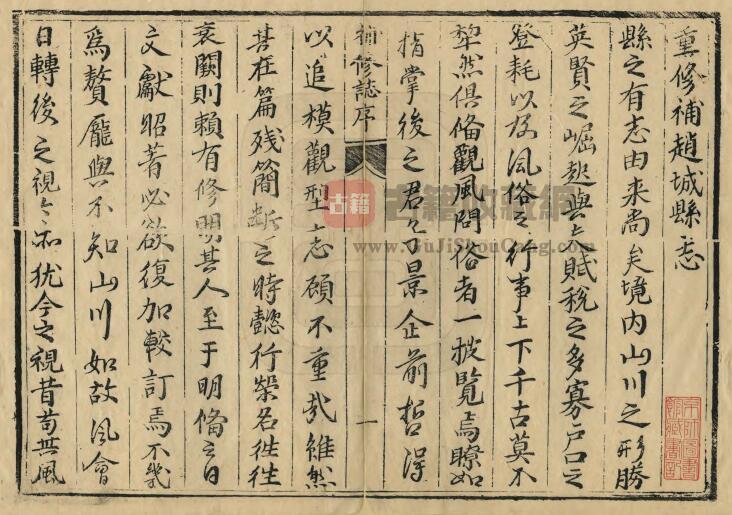 重修補趙城縣志
縣之有志由来尚矣境内山川之形勝
英賢之崛起與夫賦稅之多寡户口之
登耗以及風俗之行事上下千古莫不
犂然俱俻觀風問俗者一披覽焉瞭如
指掌後之君子景企前哲得
補修誌序
一
以追模觀型志顧不重㢤雖然
若在篇残簡断之時懿行榮名徃徃
衰闕則賴有修明其人至于明俻之日
文獻昭著必欲復加較訂焉不幾
為贅龎與不知山川如故風會
日轉後之視今亦犹今之視昔苟其風
古籍
古籍收藏網
www.GuJiShouCang.com